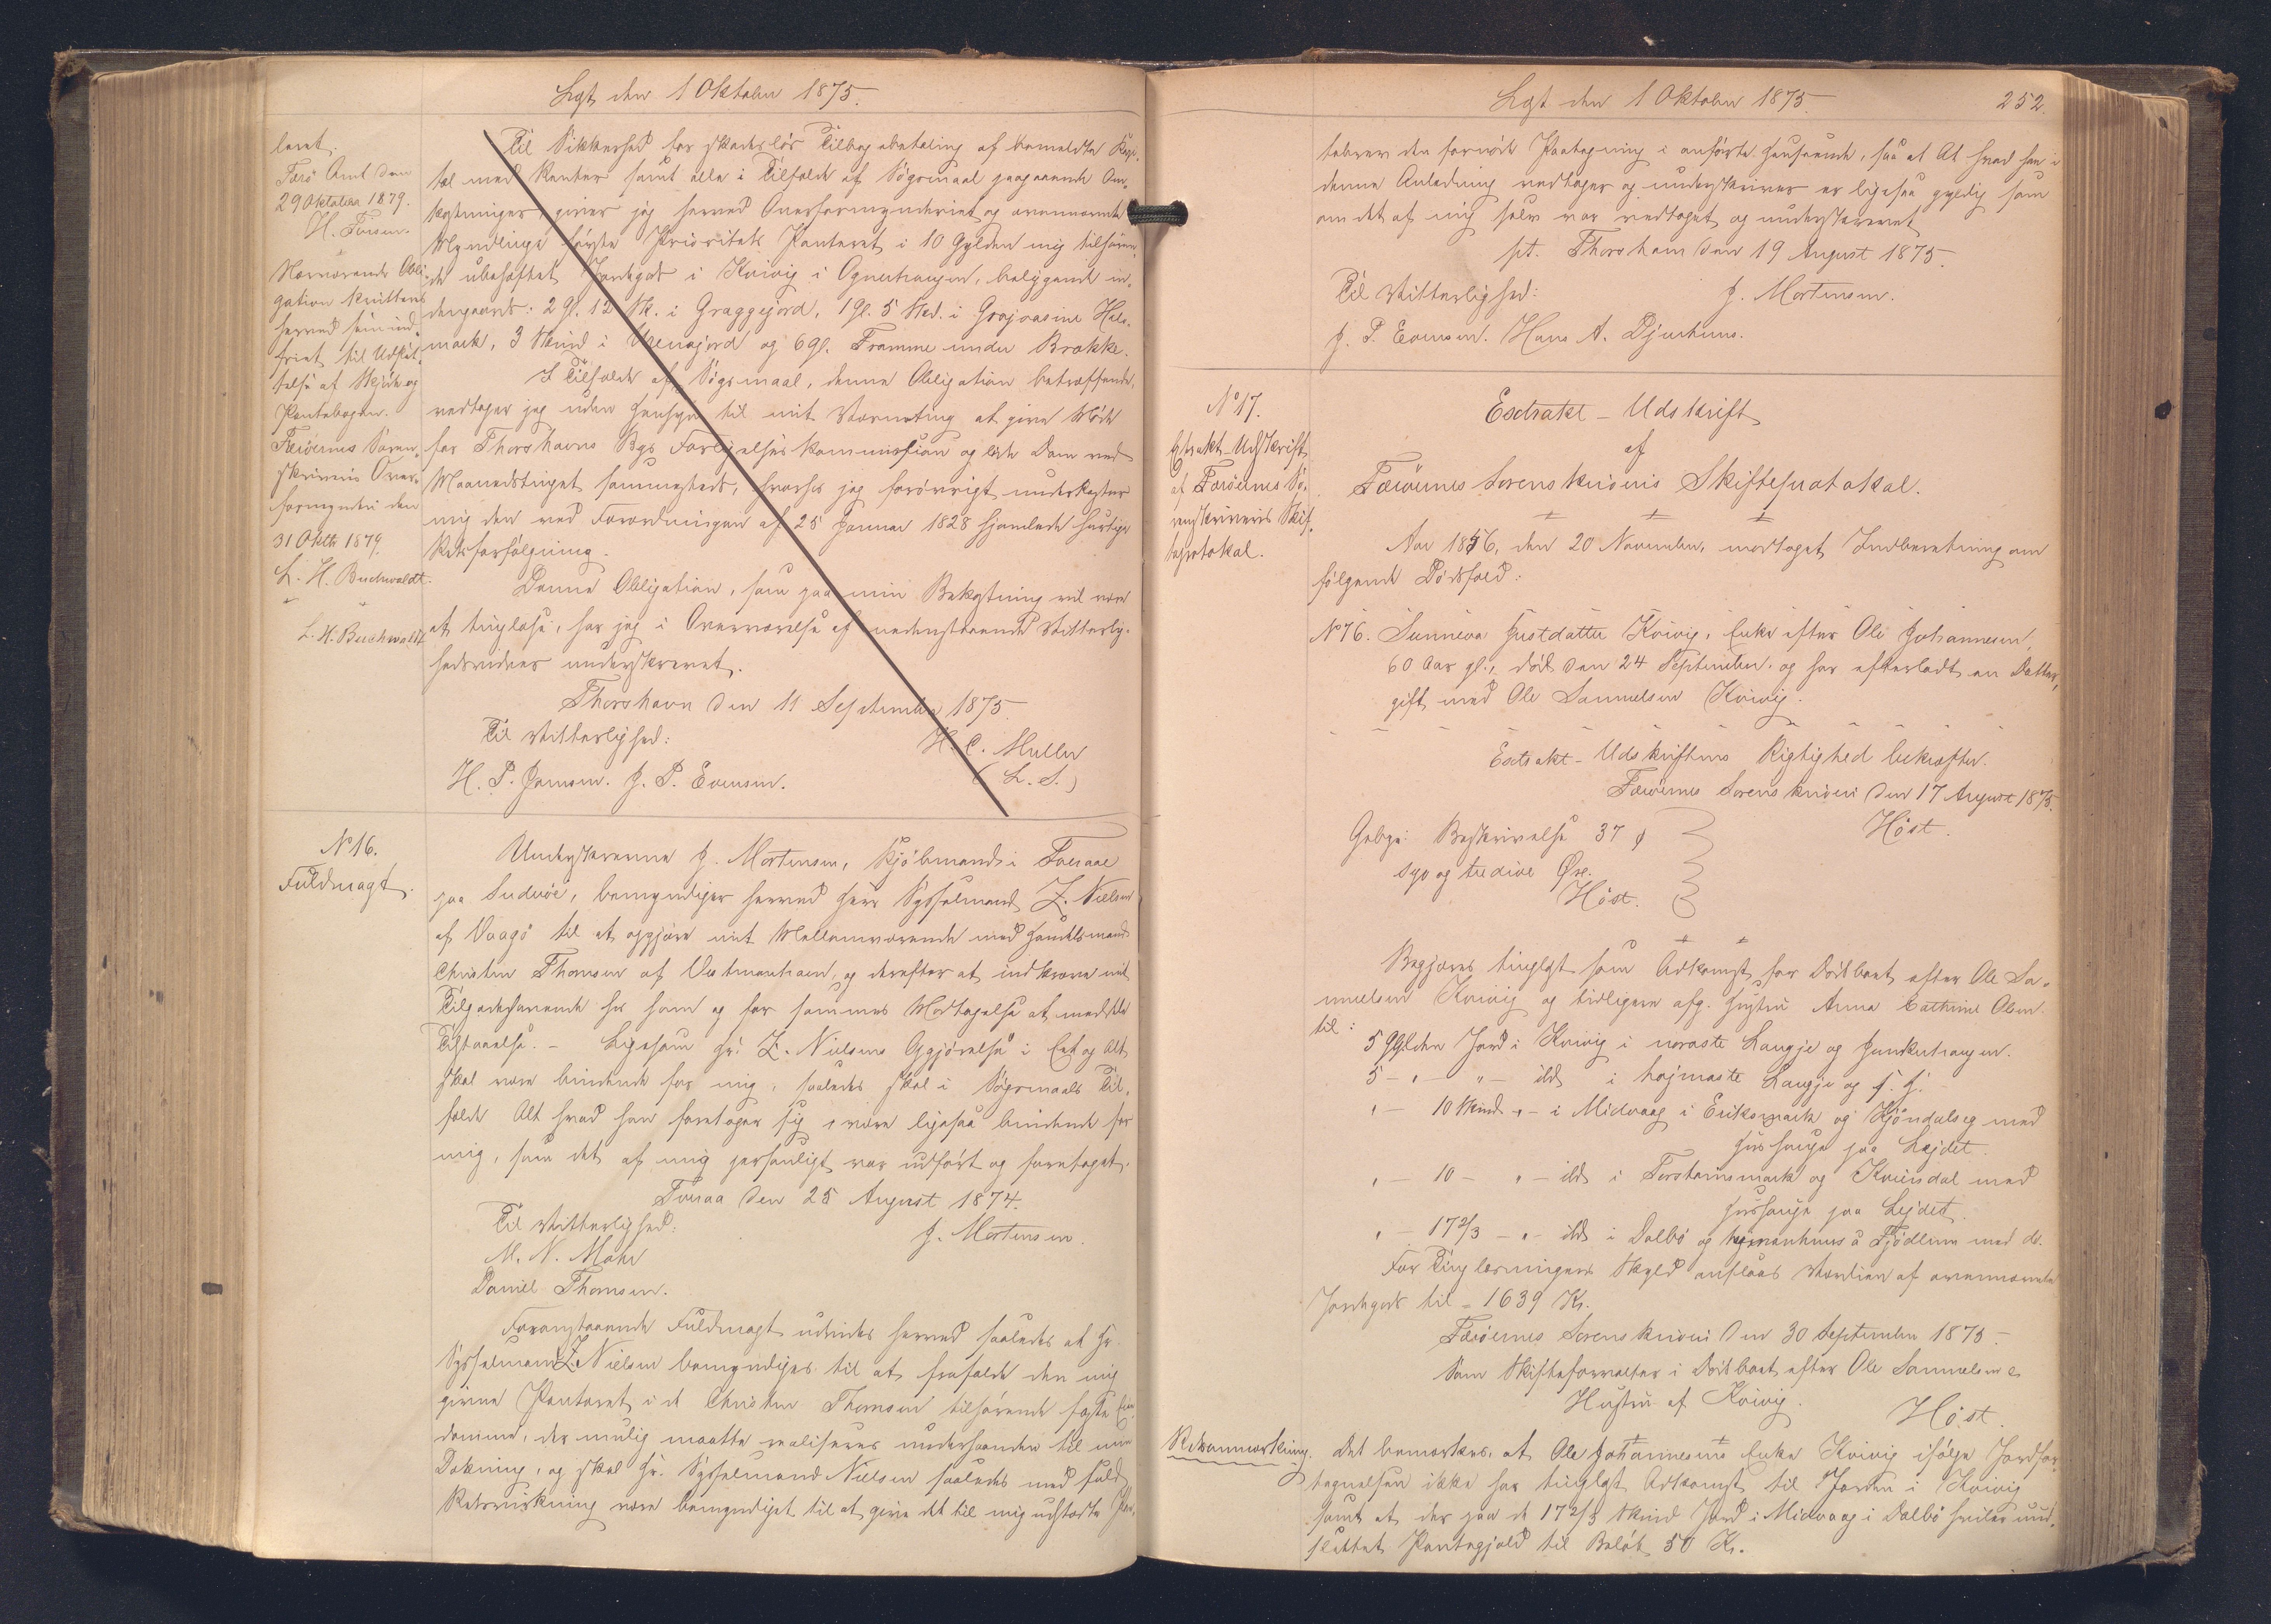 Lgt den 1 Oktober 1875.
leret.
Færø Amt den
29 Oktober 1879.
H. Finsen.
Nærværende Obli-
gation kvitteres
herved som ind-
friet til Udslet-
telse af Skjøde og
Pantebogen.
Færøernes Soren-
skriveri Over-
formynderi den
31 Oktbr 1879.
L. H. Buchwaldt.
L. H. Buchwaldt
Til Sikkerhed for skadesløs Tilbagebetaling af bemeldte Kapi-
tal med Renter samt alle i Tilfælde af Søgsmaal paagaaende Om-
kostninger, giver jeg herved Overformynderiet og ovennævnte
Myndlinge første Prioritets Panteret i 10 Gylden mig tilhøren-
de ubehæftet Jordegods i Kvivig i Ognerhaugen, beliggende in-
dengaards: 2 Gl. 12 Sk. i Graggejord, 1 Gl. 5 Skd. i
mark, 3 Skind i og 6 gl. Framme under Brække.
I Tilfælde af Søgsmaal, denne Obligation betræffende,
vedtager jeg uden Hensyn til mit Værneting at give Møde
for Thorshavns Bys Forligelseskommission og lide Dom ved
Maanedstinget sammesteds, hvorhos jeg forøvrigt underkaster
mig den ved Forordningen af 25 Januar 1828 hjemlede hurtige
Retsforfølgning.
Denne Obligation, som paa min Bekostning vil være
at tinglæse, har jeg i Overværelse af nedenstaaende Vitterlig-
hedsvidner underskrevet.
Thorshavn den 11 September 1875.
Til Vitterlighed: H. C. Müller
H. P. Jensen. J. P. Evensen. (L. S.)
No 16.
Fuldmagt.
Underskrevne J. Mortensen, Kjøbmand i Tveraae
paa Suderø, bemyndiger herved Herr Sysselmand Z. Nielsen
af Vaagø til at opgjøre mit Mellemværende med Handelsmand
Christen Thomsen af Vestmanhavn, og derefter at indkræve mit
Tilgodehavende hos ham og for sammes Modtagelse at meddele
Tilstaaelse. - Ligesom Hr. Z. Nielsens Opgjørelse i Eet og Alt
skal være bindende for mig, saaledes skal i Søgsmaals Til-
fælde Alt hvad han foretager sig, være ligesaa bindende for
mig, som det af mig personligt var udført og foretaget.
Tveraa den 25 August 1874.
Til Vitterlighed: J. Mortensen.
M. N. Mohr
Daniel Thomsen.
Foranstaaende Fuldmagt udvides herved saaledes at Hr.
Sysselmand Z. Nielsen bemyndiges til at frafalde den mig
givne Panteret i de Christen Thomsen tilhørende faste Eien-
domme, der mulig maatte realiseres underhaanden til min
Dækning, og skal Hr. Sysselmand Nielsen saaledes med fuld
Retsvirkning være bemyndiget til at give det til mig udstædte Pan-
Lgt den 1 Oktober 1875. 252.
tebrev den fornødne Paategning i anførte Henseende, saa at Alt hvad han i
denne Anledning vedtager og underskriver er ligesaa gyldig som
om det af mig selv var vedtaget og underskrevet
pt. Thorshavn den 19 August 1875.
Til Vitterlighed: J. Mortensen.
J. P. Evensen. Hans A. Djurhuus.
No 17.
Extrakt-Udskrift
af Færøernes So-
renskriveris Skif-
teprotokol.
Extrakt-Udskrift
af
Færøernes Sorenskriveris Skifteprotokol.
Aar 1856, den 20 November, modtaget Indberetning om
følgende Dødsfald:
No 76. Sunneva Justdatter Kvivig, Enke efter Ole Johannesen,
60 Aar gl., død den 24 September og har efterladt en Datter,
gift med Ole Samuelsen Kvivig.
Extrakt-Udskriftens Rigtighed bekræfter.
Færøernes Sorenskriveri den 17 August 1875.
Høst.
Gebyr: Beskrivelse 37 Ø
syv og tredive Øre.
Høst.
Begjæres tinglyst som Adkomst for Dødsboet efter Ole Sa-
muelsen Kvivig og tidligere afg. Hustru Anna Cathrine Olsen
til:
5 Gylden Jord i Kvivig i noraste Laugje og Junkerhaugen.
5 - " - " - ibd i hajmaste Laugje og s. H.
" - 10 Skind " - i Midvaag i Eriksmark og Kjøndalseg med
Hushauge paa Lejdet.
" - 10 - " - ibd i Torsteinsmark og Kviendal med
Hushauge paa Lejdet.
" - 17 2/3 - " - ibd i Dalbø og hejmanhuus á Fjødlinu med do.
For Tinglæsningens Skyld anslaaes Værdien af ovennævnte
Jordegods til = 1639 Kr.
Færøernes Sorenskriveri den 30 September 1875.
Som Skifteforvalter i Dødsboet efter Ole Samuelsen &
Hustru af Kvivig.
Høst.
Retsanmærkning. Det bemærkes, at Ole Johannesens Enke Kvivig ifølge Jordfor-
tegnelsen ikke har tinglyst Adkomst til Jorden i Kvivig
samt at der paa de 17 2/3 Skind Jord i Midvaag i Dalbø hviler uud-
slettet Pantegjæld til Beløb 50 Kr.